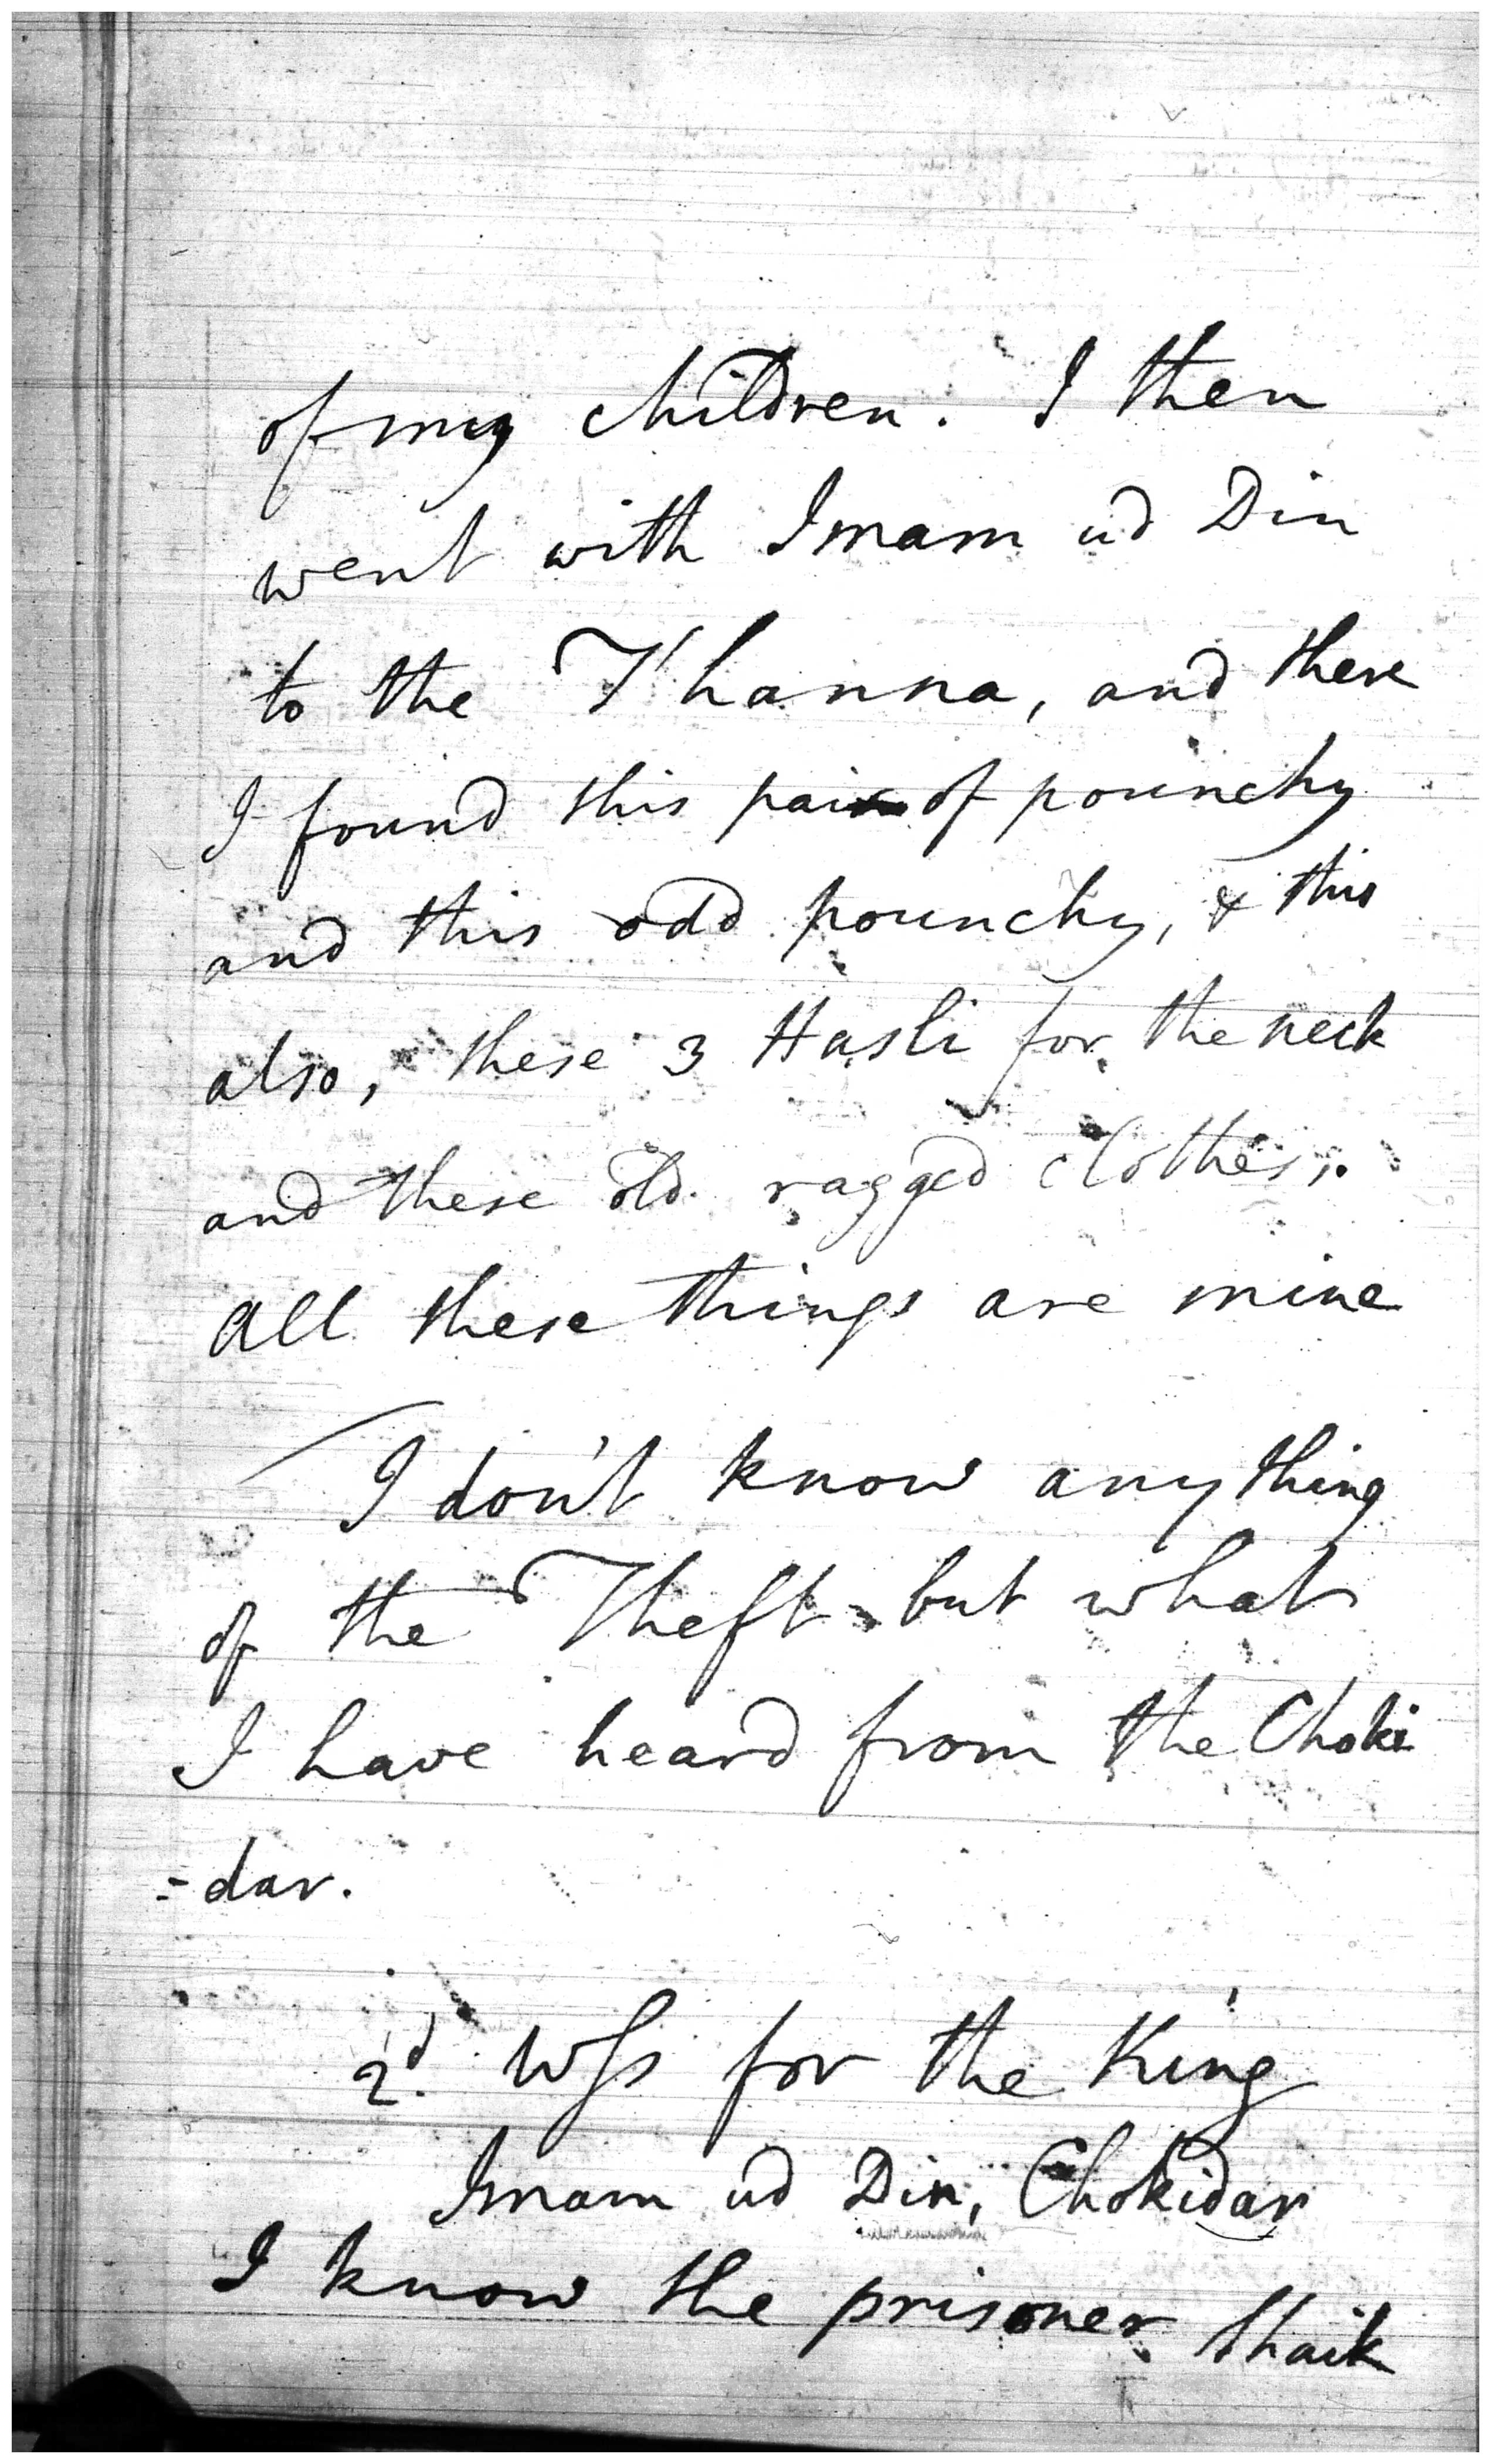 of my children. I then
went with Imam ud Din
to the T'hanna, and there
I found this pair of pounchy
and this odd pounchy, & this
also, these 3 Hasli for the neck
and these old ragged clothes,.
All these things are mine
I don't know anything
of the Theft but what
I have heard from the Choki
=dar.
2d. Wss for the King
Imam ud Din, Chokidar
I know the prisoner Shaik